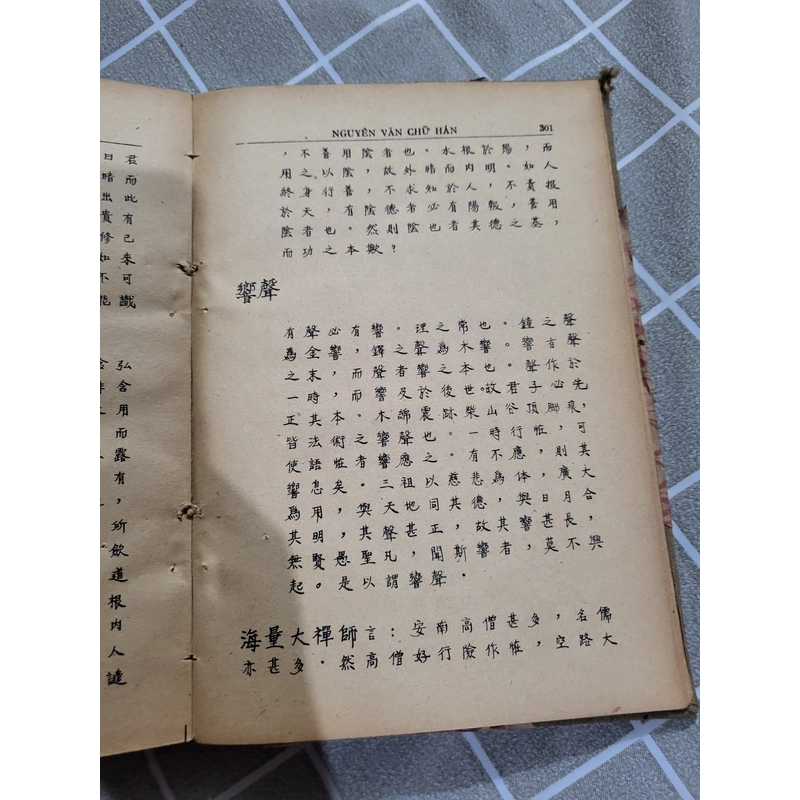 君
而
此
有
己
來
可
識
日
晴
出
貴
修
如
不
能
弘
含
用
而
露
有，
所
飲
道
根
内
人
謎
NGUYÊN VĂN CHỮ HÁN 301
，不善用陰者也。水根於陽，而
用之以陰，故外晴而内明。如人
終身行善，不求知於人，不責报
於天，有陰德者必有陽報，善用
陰者也。然則陰也者其德之基，
而功之本歟？
響聲
有聲必有響。理之常也。鐘之聲
為金響，鐸之聲為木響。響言聲
之末，而聲者響之本也。聲作於
一時，而響及於後世。故君子必先
正其本。木綿震跡柴山谷頂脚痕，
皆法術之響聲也。一時行怪，可
使語怪者響應之。有不應，則其
響息矣。三祖以慈悲為体，廣大
為用，與天地同其德，與日月合
其明，其聲甚正，故其響甚長，
無賢愚聖凡，聞斯響者，莫不興
起。是以謂響聲．
海量大禪師言：安南高僧甚多，名儒
亦甚多．然高僧好行險作怪，空路大